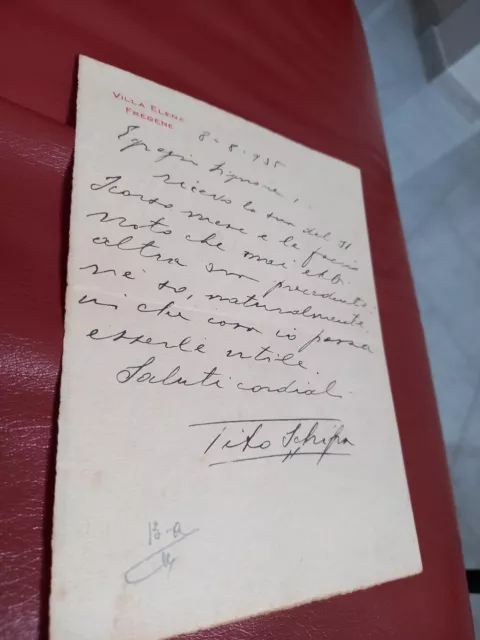 VILLA ELENA
FREGENE
8-8-935
Egregio Signore,
ricevo la sua del 31
scorso mese e le faccio
noto che mai ebbi
altra sua precedente.
Né so, naturalmente,
in che cosa io possa
esserle utile.
Saluti cordiali
Tito Schipa